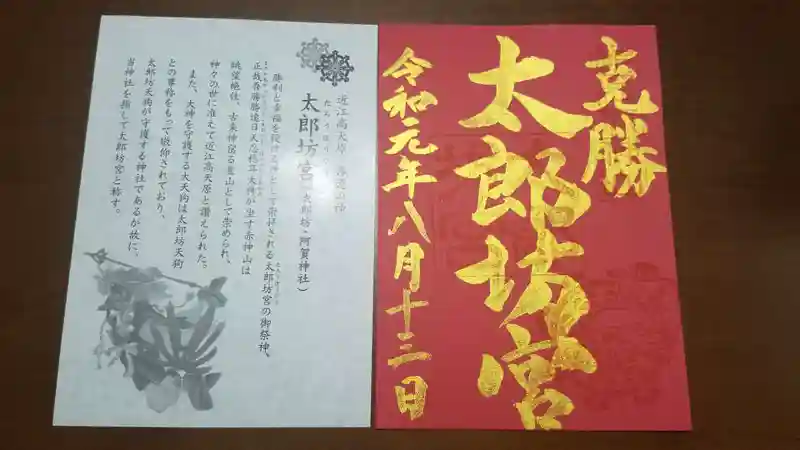 克勝
太郎坊宮
令和元年八月十三日
近江高天原
たろうぼう
太郎坊宮（太郎坊・阿賀神社）
勝利と幸福を授ける神として崇拝される太郎坊宮の御祭神、
正哉吾勝勝速日天忍穂耳大神が坐す赤神山は
眺望絶佳、古来神宿る霊山として崇められ、
神々の世に准えて近江高天原と讃えられた。
また、大神を守護する大天狗は太郎坊天狗
との尊称をもって敬仰されており、
太郎坊天狗が守護する神社であるが故に、
当神社を指して太郎坊宮と称す。